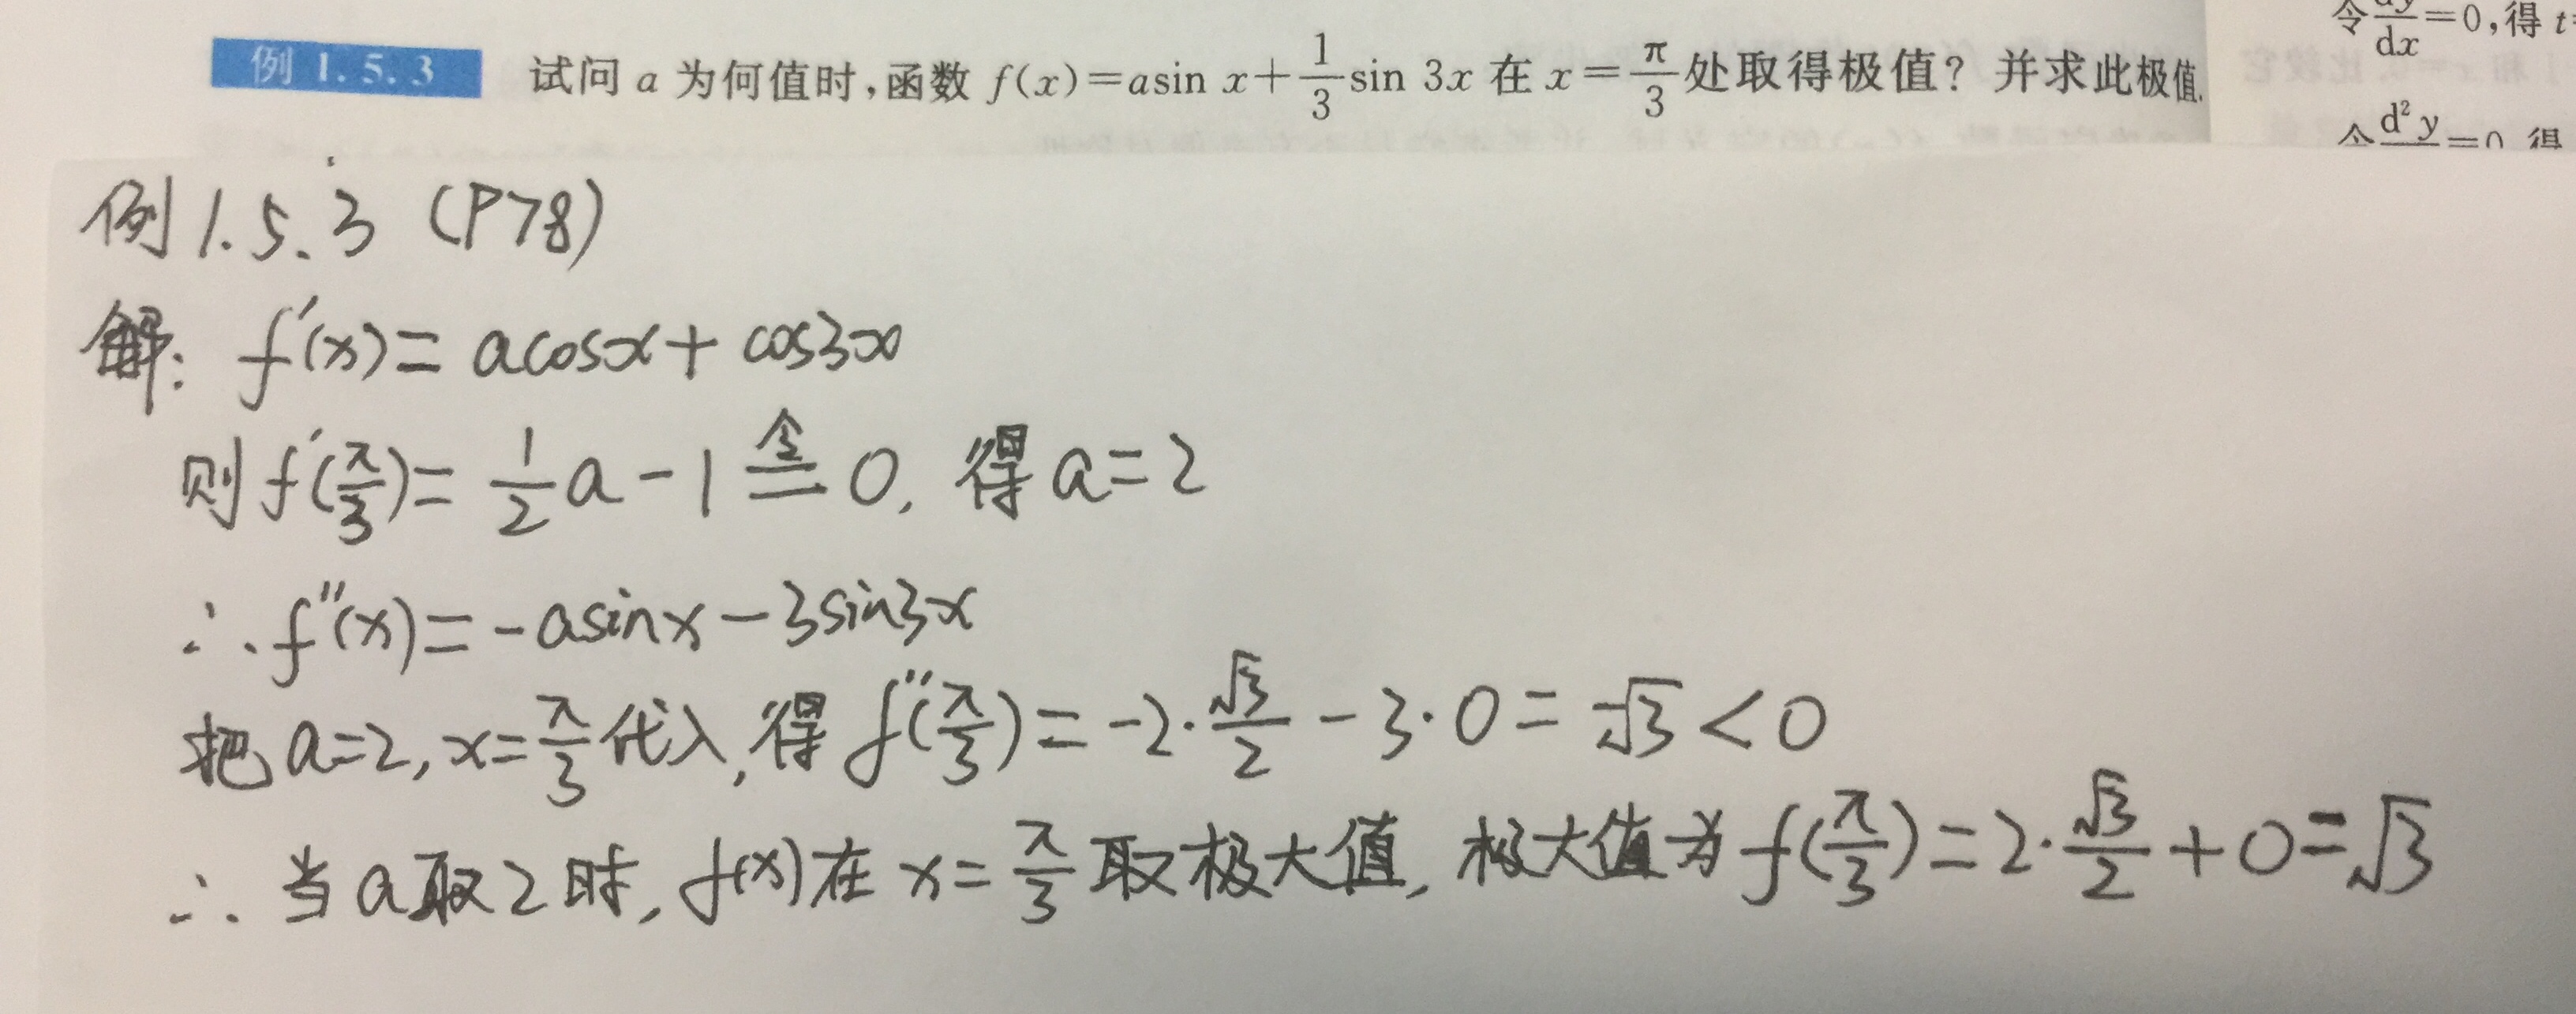 例 1.5.3 试问 a 为何值时,函数 f(x)=asin x+\frac{1}{3}sin 3x 在 x=\frac{π}{3}处取得极值? 并求此极值.
令\frac{dy}{dx}=0,得 t=
\frac{d²y}{}=0 得
例1.5.3 (P78)
解: f'(x)= acosx+ cos3x
则 f'(\frac{π}{3})= \frac{1}{2}a-1 \overset{令}{=} 0, 得 a=2
∴ f''(x)= -asinx-3sin3x
把 a=2, x=\frac{π}{3}代入, 得 f''(\frac{π}{3})= -2·\frac{√3}{2}-3·0= -√3<0
∴ 当 a取2时, f(x)在 x=\frac{π}{3}取极大值, 极大值为 f(\frac{π}{3})=2·\frac{√3}{2}+0=√3